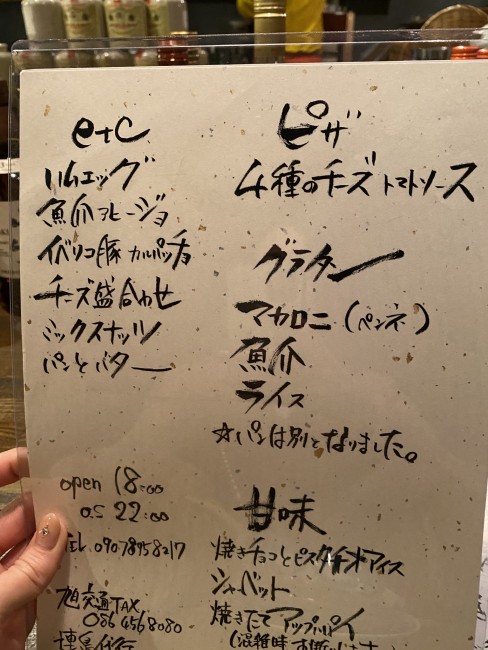 etc
ハムエッグ
魚介アヒージョ
イベリコ豚 カルパッチョ
チーズ盛合わせ
ミックスナッツ
パンとバター
open 18:00
o.s 22:00
TEL. 09078958217
旭交通TAX
086 456 8080
ピザ
4種のチーズ トマトソース
グラタン
マカロニ (ペンネ)
魚介
ライス
☆パンは別となりました。
甘味
焼きチョコとピスタチオアイス
シャーベット
焼きたてアップルパイ